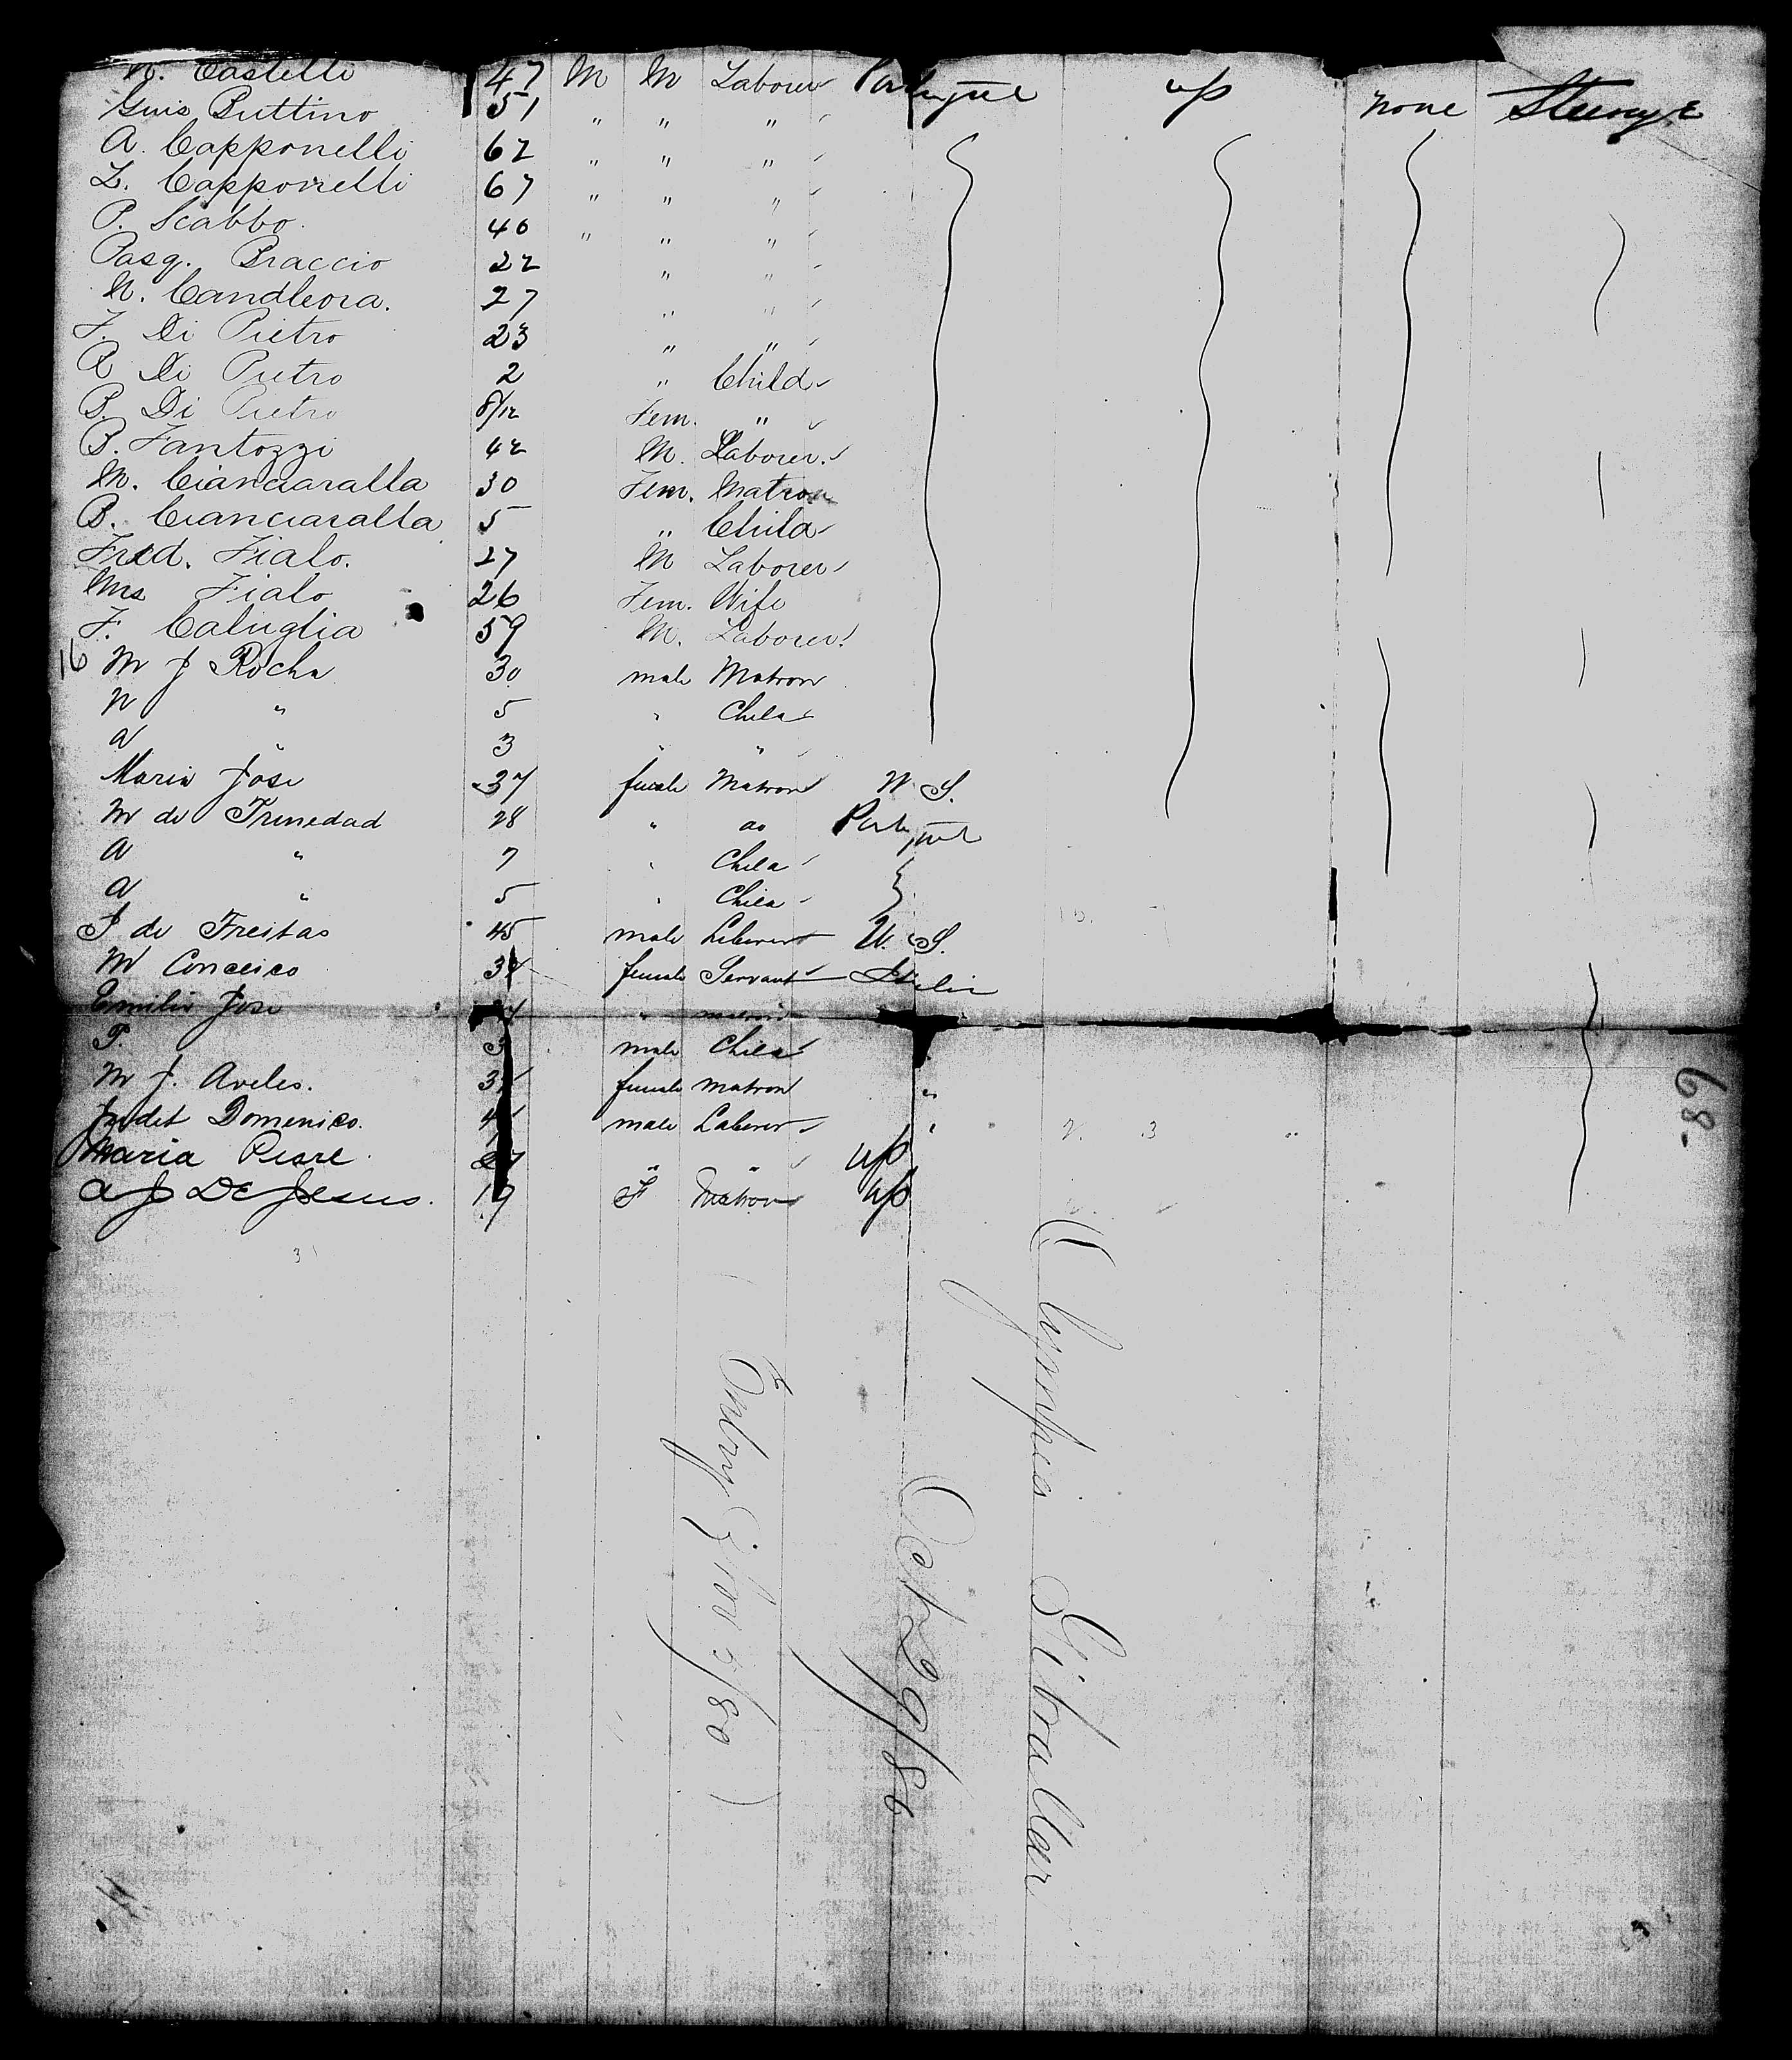 N. Castelli 47 M M Laborer Portugal up none Steerage
Guis Puttino 51 " " "
A. Capponelli 62 " " "
Z. Capponelli 67 " " "
P. Scabbo. 40 " " "
Pasq. Braccio 22 " "
N. Candleora. 27 " "
F. Di Pietro 23 " "
R Di Pietro 2 " Child
B. Di Pietro 8/12 Fem. "
B. Fantozzi 42 M. Laborer.
M. Cianciaralla 30 Fem. Matron
B. Cianciaralla 5 " Child
Fred. Fialo. 27 M Laborer
Mrs Fialo 26 Fem. Wife
F. Caluglia 59 M. Laborer
16 M J Rocha 30 male Matron
N " 5 " Child
A " 3 " "
Maria Jose 37 female Matron U. S.
M de Trinedad 28 " do Portugal
A " 7 " Child
A " 5 " Child
J de Freitas 45 male Laborer U. S.
M Conceico female Servant Italia
Emilia Jose " matron
P 3 male Child
M J. Aveles. female matron "
Judet Domenico. male Laborer "
Maria Pesre " " up
A J De Jesus. 19 F Matron up
68-
Olympia Gibraltar
Oct 29/86
(Entry Nov 5/80)